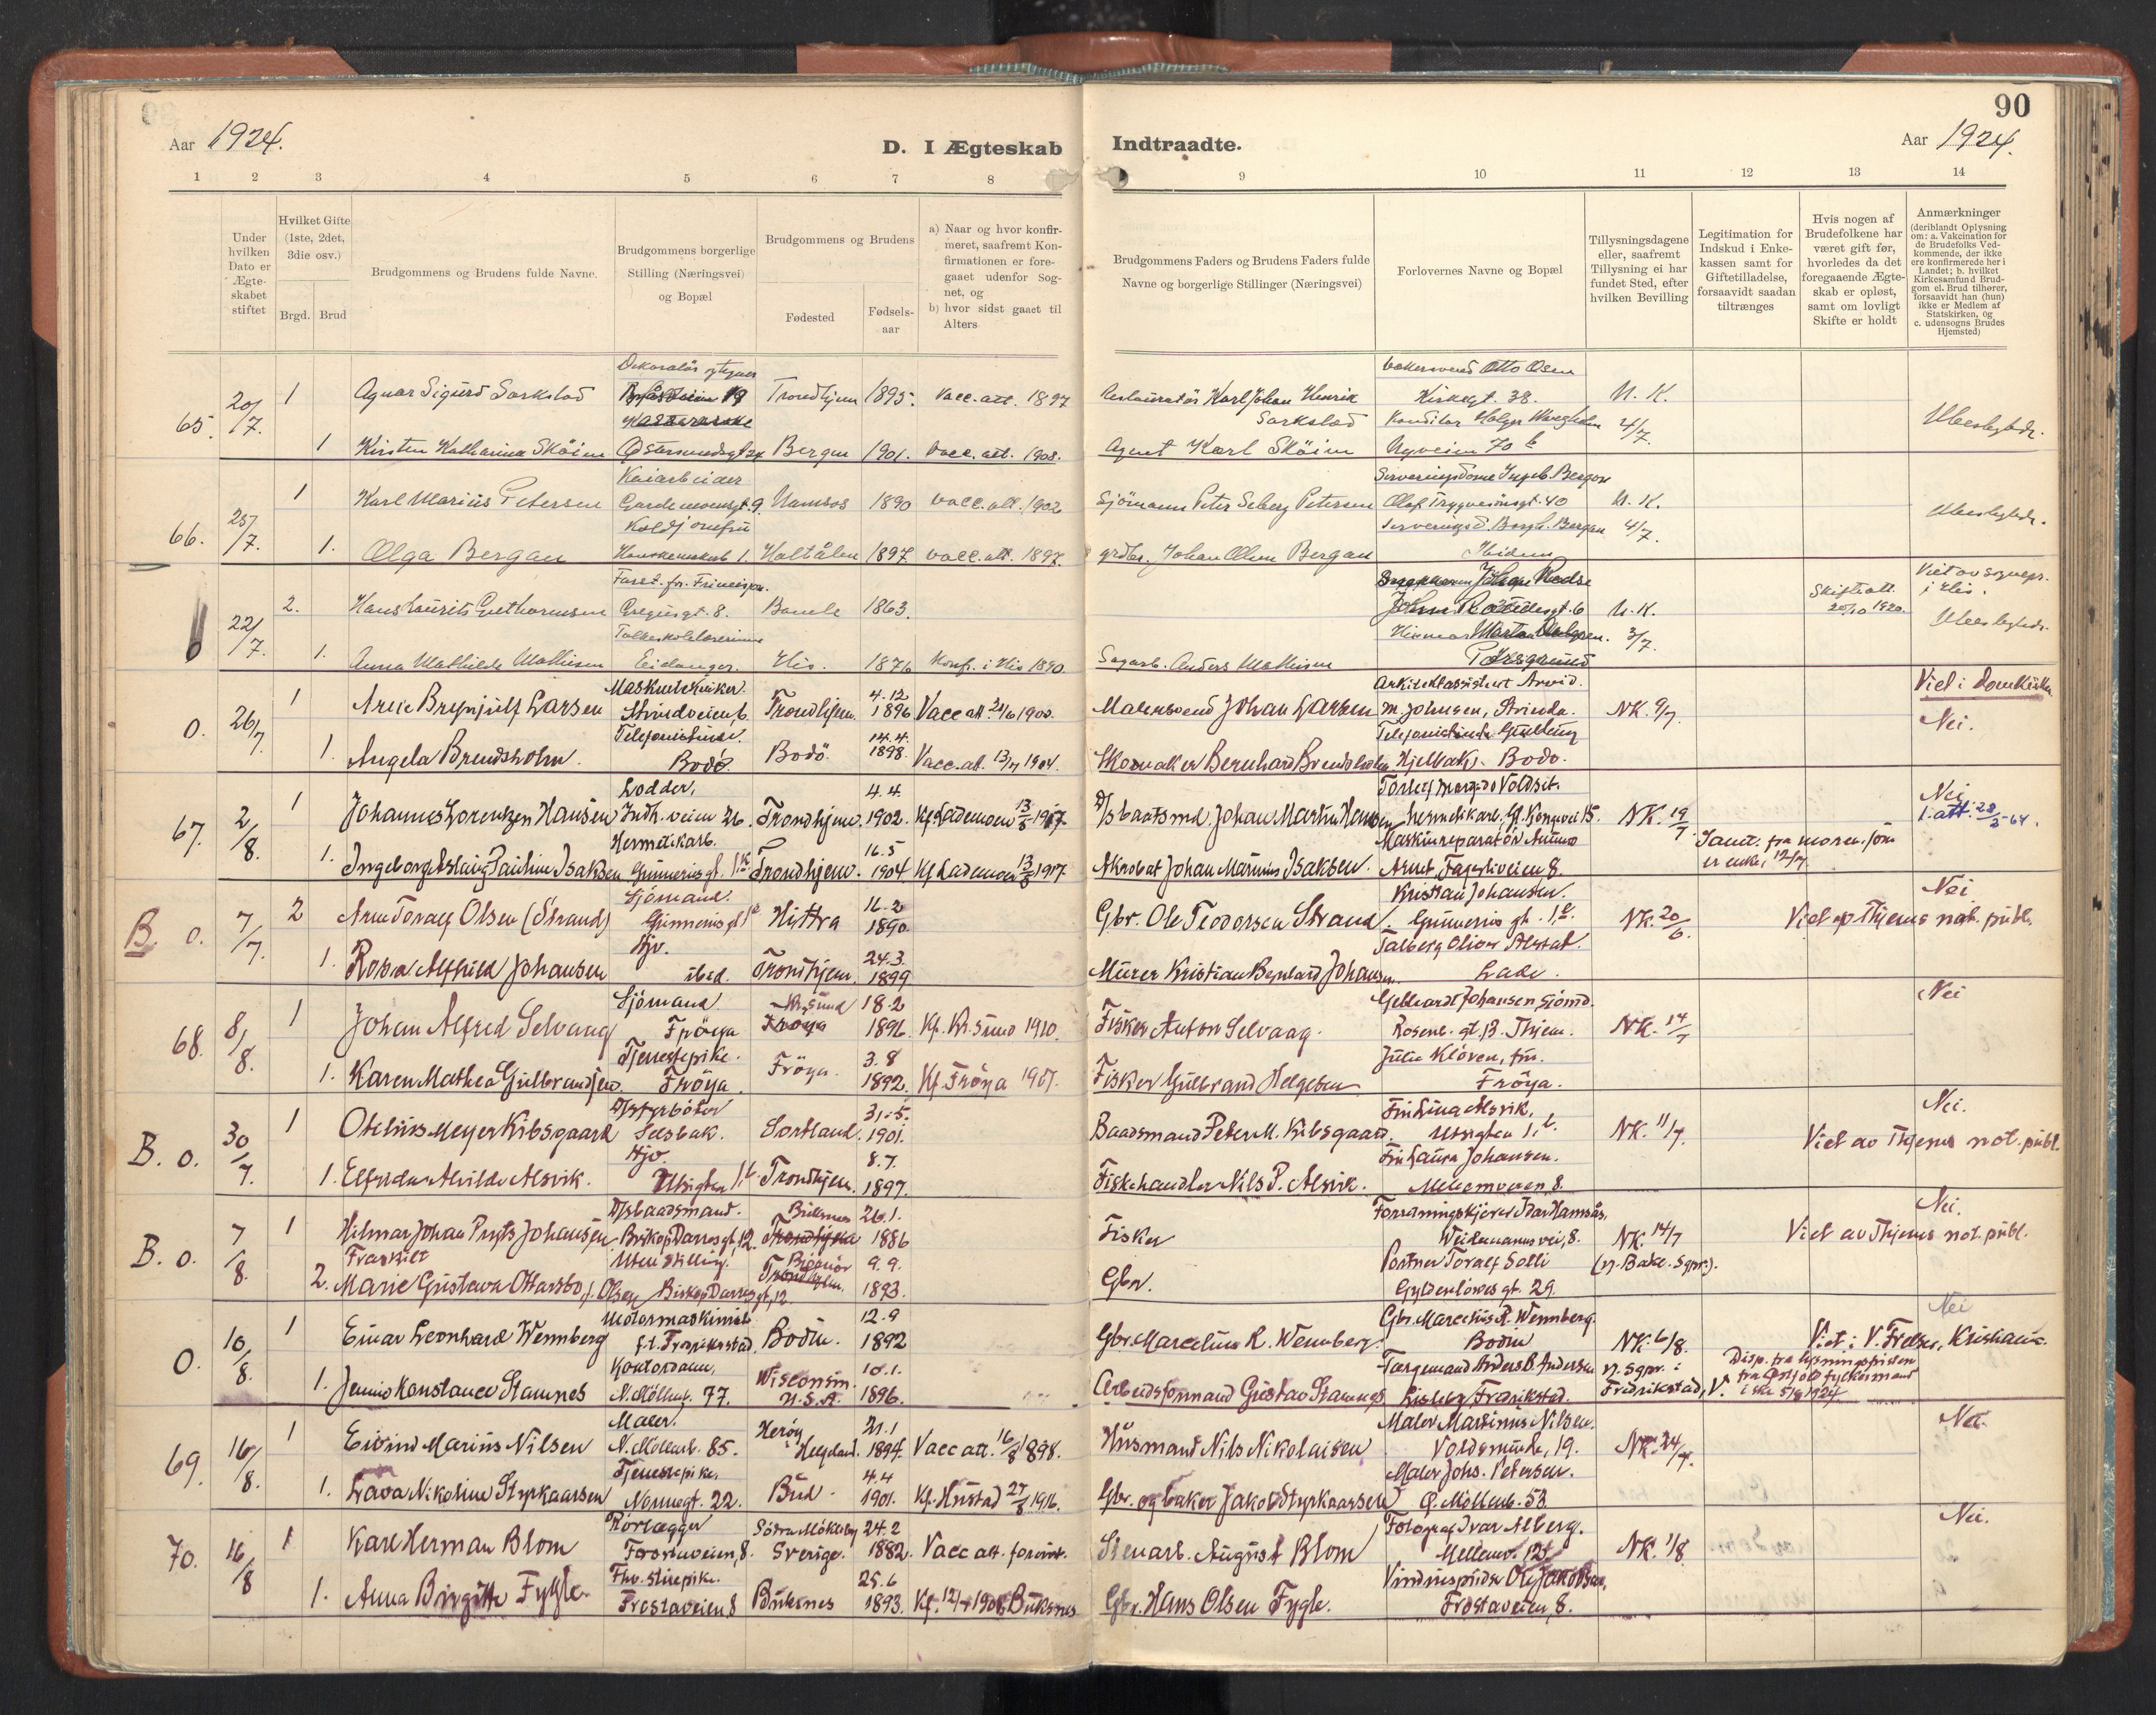 90
Aar 1924.
D. I Ægteskab Indtraadte.
Aar 1924.
1 2 3 4 5 6 7 8 9 10 11 12 13 14
Under hvilken Dato er Ægteskabet stiftet
Hvilket Gifte (1ste, 2det, 3die osv.)
Brgd. Brud
Brudgommens og Brudens fulde Navne.
Brudgommens borgerlige Stilling (Næringsvei) og Bopæl
Brudgommens og Brudens
Fødested
Fødsels-aar
a) Naar og hvor konfir-
meret, saafremt Kon-
firmationen er fore-
gaaet udenfor Sog-
net, og
b) hvor sidst gaaet til
Alters
Brudgommens Faders og Brudens Faders fulde
Navne og borgerlige Stillinger (Næringsvei)
Forlovernes Navne og Bopæl
Tillysningsdagene
eller, saafremt
Tillysning ei har
fundet Sted, efter
hvilken Bevilling
Legitimation for
Indskud i Enke-
kassen samt for
Giftetilladelse,
forsaavidt saadan
tiltrænges
Hvis nogen af
Brudefolkene har
været gift før,
hvorledes da det
foregaaende Ægte-
skab er opløst,
samt om lovligt
Skifte er holdt
Anmærkninger
(deriblandt Oplysning
om: a. Vakcination for
de Brudefolks Ved-
kommende, der ikke
ere konfirmerede her i
Landet; b. hvilket
Kirkesamfund Brud-
gom el. Brud tilhører,
forsaavidt han (hun)
ikke er Medlem af
Statskirken, og
c. udensogns Brudes
Hjemsted)
65. 20/7. 1 Agnar Sigurd Sarkslad Trondhjem 1895. Vacc. att. 1897 Restauratör Karl Johan Henrik Sarkslad Otto Olsen Kirkegt. 38. N. K. 4/7.
1 Kirsten Katharina Sköien Östersundsgt 24 Bergen 1901. Vacc. att. 1908. Agent Karl Sköien Konditor Holger Nyveien 70 b Ubeslegtede.
66. 25/7. 1 Karl Marius Petersen Kaiarbeider Gardemoensgt. 9. Namsos 1890 Vacc. att. 1902 Sjömann Peter Seberg Petersen Olaf Trygvesönsgt. 40 N. K. 4/7.
1. Olga Bergan Koldjomfru 1. Holtålen 1897. Vacc. att. 1897. grdbr. Johan Olsen Bergan Ibidem Ubeslegtede.
0 22/7. 2. Hans Laurits Guthormsen gt. 8. Bamle 1863. N. K. 3/7. Skifteatt. 20/10 1920. Viet av sognepr. i His.
1. Anna Mathilde Mathisen Folkeskolelærerinne Eidanger. His. 1876 Konf. i His 1890. Sagarb. Anders Mathisen Porsgrund Ubeslegtede.
0. 26/7. 1 Arne Brynjulf Larsen Maskintekniker. Strindveien 6. Trondhjem. 4.12 1896 Vacc att. 24/6 1900. Malersvend Johan Larsen Arkitektassistent Arvid M. Johnsen, Strinda. NK. 9/7. Viet i Domkirken Nei.
1. Angela Brendsholm. Telefonistinde. Bodö. Bodö. 14.4. 1898. Vacc. att. 13/7 1904. Skomaker Bernhard Brendsholm Hjelbak, Bodo.
67. 2/8. 1 Johannes Lorentzen Hansen Lodder, Indh. veien 26. Trondhjem. 4.4. 1902. Kf. Lademoen 13/5 1917. D/Sbaatsmd. Johan Martin Hansen NK. 19/7. Nei 1. att. 28/2-64.
1. Ingeborg Aslaug Pauline Isaksen Hermetikarb. Gunnerus gt. 1 c Trondhjem. 16.5 1904. Kf. Lademoen 13/5 1917 Akrobat Johan Marinus Isaksen. Maskinreparatör Fagerliveien 8. Samt. fra moren, som er enke, 12/7.
B 0. 7/7. 2 Arne Toralf Olsen (Strand) Sjömand. Gunnerus gt 1 c Hittra 16.2 1890. Gbr. Ole Teodorsen Strand. Kristian Johansen. Gunnerus gt. 1 c. NK. 20/6. Nei Viet av Thjems not. publ.
1. Rosa Alfhild Johansen Hjv. ibid. Trondhjem. 24.3. 1899 Murer Kristian Bernhard Johansen. Talberg Oliver Alstad. Lade.
68. 8/8. 1 Johan Alfred Selvaag Sjömand Fröya Kr.sund 18.2 1896 Kf. Kr. sund 1910. Fisker Anton Selvaag. Gebhardt Johansen sjömd. Rosenb. gt. 13. Thjem. NK. 14/7 Nei
1. Karen Mathea Gulbrandsen Tjenestepike. Fröya. Fröya. 3.8 1892. Kf. Fröya 1907. Fisker Gulbrand Helgesen Julie Klöven, frü. Fröya.
B. 0. 30/7. 1 Otelius Meyer Kibsgaard D/Sfyrböter Selsbak. Sortland. 31.5. 1901. Baadsmand Peter M. Kibsgaard. Fru Lina Alsvik, Utsigten 1. b. NK. 11/7. Nei. Viet av Thjems not. publ.
1. Elfrida Alvilde Alsvik. Hjv. Utsigten 1. b. Trondhjem. 8.7. 1897. Fiskehandler Nils P. Alsvik. Fru Laura Johansen. Mellemveien, 8.
B. 0. 7/8. 1 Hilmar Johan Pryts Johansen D/Sbaadsmand. Biskop Darres gt, 12. Buksnes Trondhjem 26.1. 1886 Fisker Forretningskjörer Ivar Hamsås, Weidemannsvei, 8. NK. 14/7 (v. Bakl. Sgpr.). Nei. Viet av Thjems not. publ.
Fraskilt
2. Marie Gustava Ottarsbo, f. Olsen Uten stilling. Biskop Darres gt, 12. Bjönör Trondhjem. 9.9. 1893. Gbr. Portner Toralf Solli Gyldenlöwes gt. 29.
0. 10/8. 1 Einar Leonhard Wennberg Motormaskinist f.t. Fredrikstad. Bodin. 12.9 1892 Gbr. Marcelius R. Wennberg. Gbr. Marcelius R. Wennberg. Bodin NK. 6/8. Nei Viet i V. Frelser, Kristiania.
1. Jennie Konstance Stamnes Kontordame, N. Möllenb. 77. Wisconsin. U.S.A. 10.1. 1896. Arbeidsformand Gustav Stamnes Anders B. Andersen Lisleby, Fredrikstad. v. Sgpr. i Fredrikstad, V. Disp. fra lysningsfristen fra Østfold fylkesmand 5/8 1924.
69. 16/8. 1 Eivind Marius Nilsen Maler. N. Möllenb. 85. Heröy Helgeland. 21.1 1894. Vacc att. 16/8 1898. Husmand Nils Nikolaisen Maler Martinus Nilsen. Voldsminde, 19. NK. 24/7. Nei.
1. Lava Nikoline Styrkaarsen Tjenestepike. Nonnegt. 22. Bud. 4.4 1901. Kf. Hustad 27/8 1916. Gbr. og baker Jakob Styrkaarsen Maler Johs. Petersen. Ö. Möllenb. 53.
70. 16/8 1 Karl Herman Blom Rörlægger Frostaveien, 8. Södra Möckleby Sverige. 24.2 1882. Vacc att. forevist. Stenarb. August Blom Fotograf Ivar Alberg. Mellemv. 12. NK. 1/8 Nei.
1. Anna Birgitte Fygle. Frostaveien 8 Buksnes 25.6 1893. Kf. 12/7 1908, Buksnes Gbr. Hans Olsen Fygle. Vinduspudser Ole Jakobsen, Frostaveien, 8.